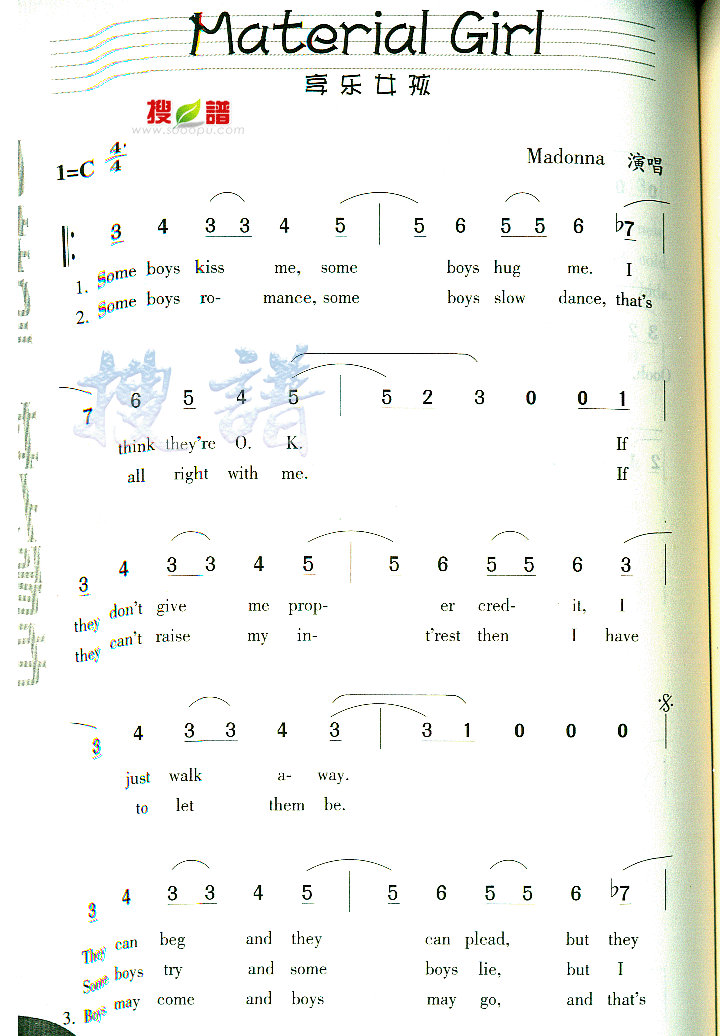 Material Girl
享乐女孩
搜谱
www.sooopu.com
1=C 4/4
Madonna 演唱
3 4 3 3 4 5 | 5 6 5 5 6 ♭7
1. Some boys kiss me, some boys hug me. I
2. Some boys ro- mance, some boys slow dance, that's
7 6 5 4 5 | 5 2 3 0 0 1
think they're O. K. If
all right with me. If
3 4 3 3 4 5 | 5 6 5 5 6 3
they don't give me prop- er cred- it, I
they can't raise my in- t'rest then I have
3 4 3 3 4 3 | 3 1 0 0 0
just walk a- way.
to let them be.
3 4 3 3 4 5 | 5 6 5 5 6 ♭7
They can beg and they can plead, but they
Some boys try and some boys lie, but I
3. Boys may come and boys may go, and that's